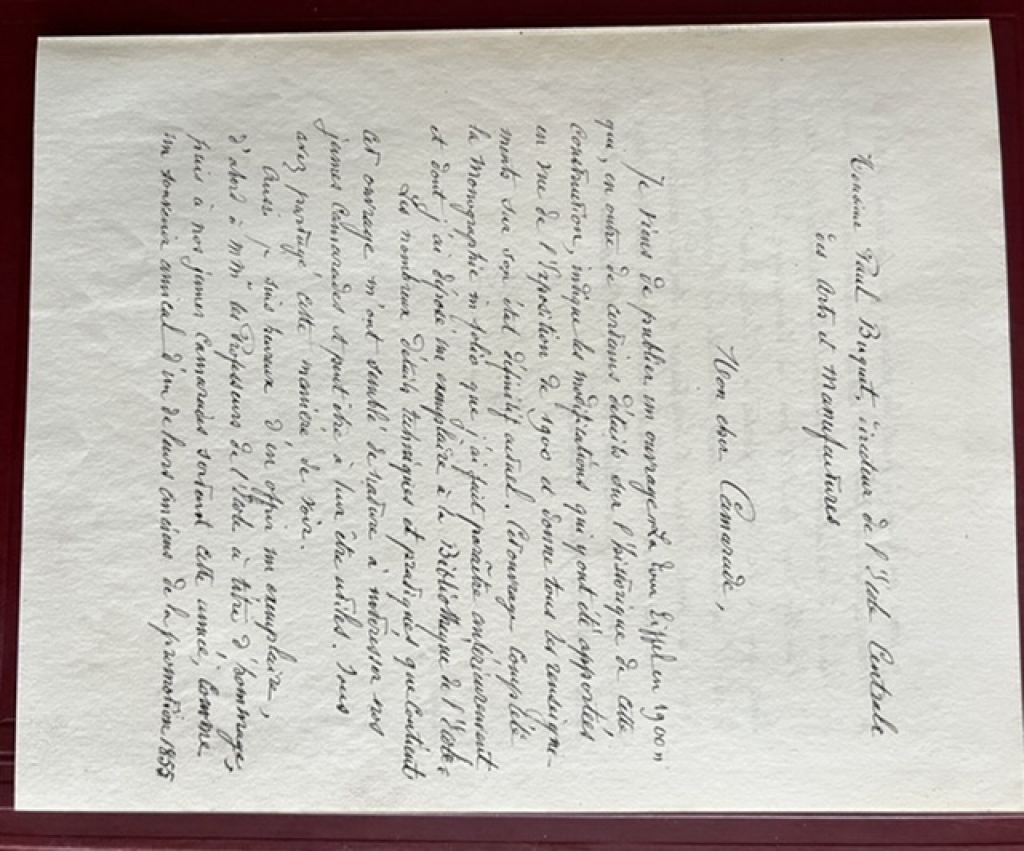 Monsieur Paul Buquet, directeur de l'Ecole Centrale
des Arts et Manufactures
Mon cher Camarade,
Je viens de publier un ouvrage "La Tour Eiffel en 1900"
qui, en outre de certains détails sur l'historique de cette
construction, indique les modifications qui y ont été apportées
en vue de l'Exposition de 1900 et donne tous les renseigne-
ments sur son état définitif actuel. Cet ouvrage complète
la monographie in folio que j'ai fait paraître antérieurement
et dont j'ai déposé un exemplaire à la Bibliothèque de l'Ecole.
Les nombreux détails techniques et pratiques que contient
cet ouvrage m'ont semblé de nature à intéresser nos
jeunes Camarades et peut être à leur être utiles. Vous
avez partagé cette manière de voir.
Aussi je suis heureux d'en offrir un exemplaire,
d'abord à MM. les Professeurs de l'Ecole à titre d'hommage,
puis à nos jeunes Camarades sortant cette année, comme
un souvenir amical d'un de leurs anciens de la promotion 1855